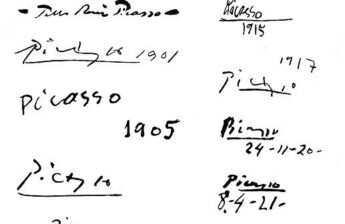 Picasso
1901
Picasso
1905
Picasso
Picasso
1915
1917
Picasso
Picasso
24-11-20-
Picasso
8-4-21-